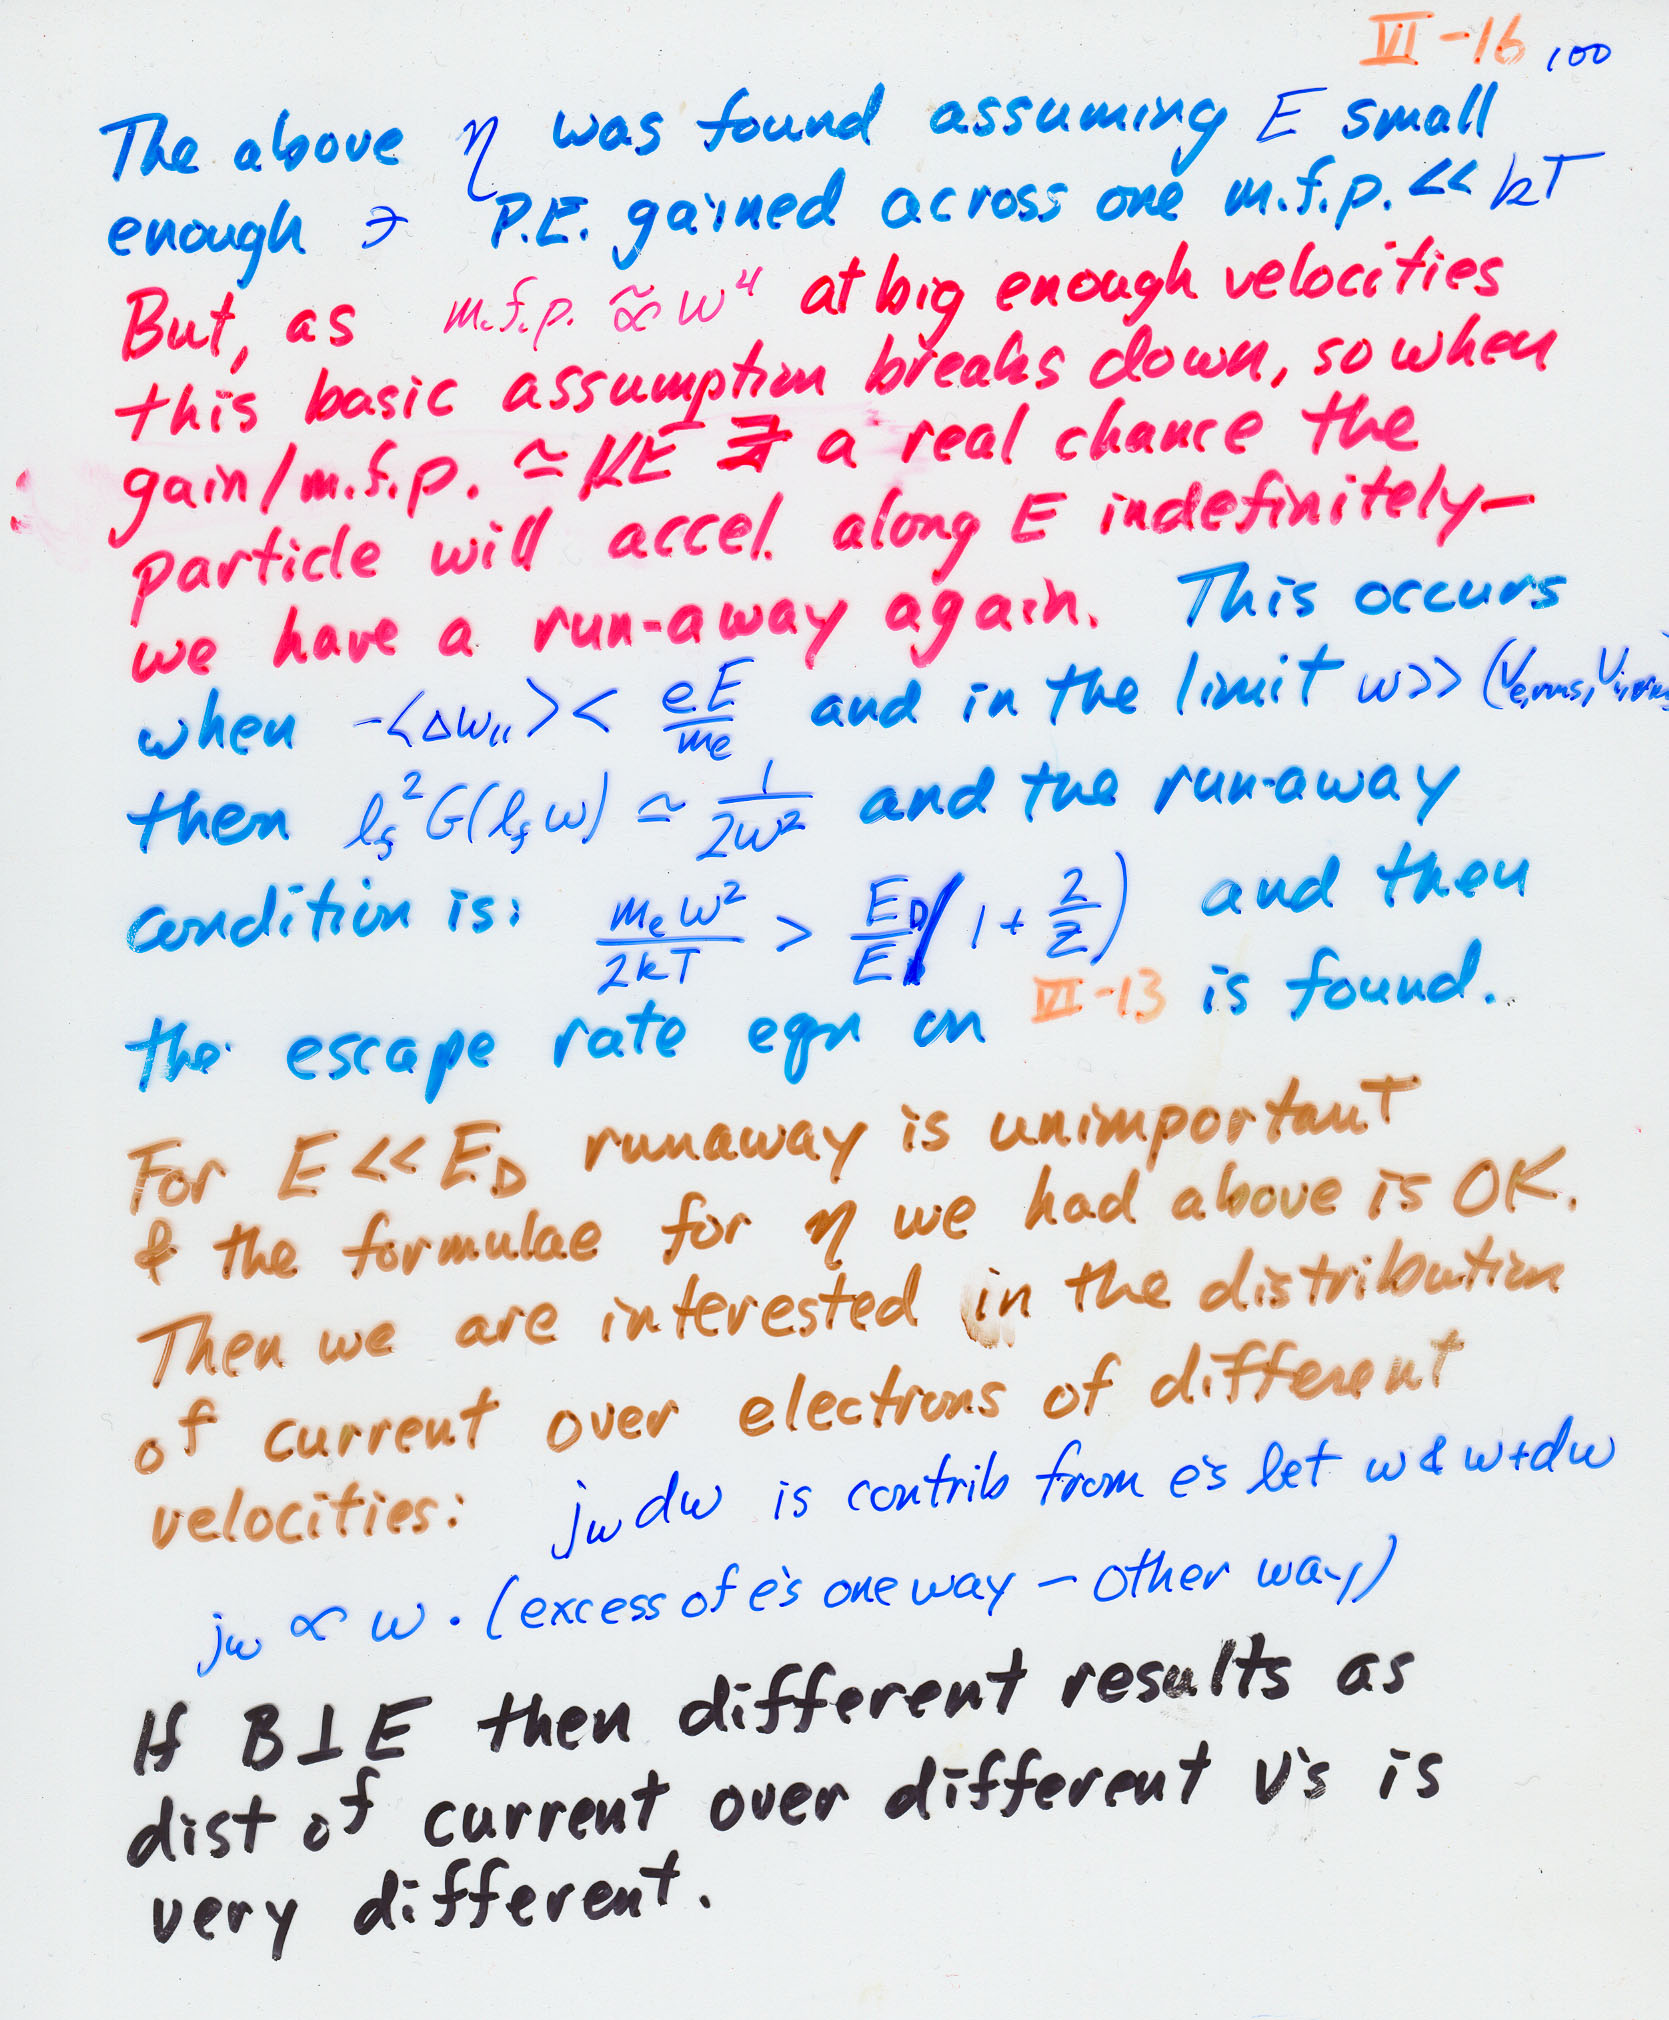 VI-16 100
The above η was found assuming E small
enough ∋ P.E. gained across one m.f.p. << kT
But, as m.f.p. ∝~ w⁴ at big enough velocities
this basic assumption breaks down, so when
gain/m.f.p. ≃ KE ∃ a real chance the
particle will accel. along E indefinitely—
we have a run-away again. This occurs
when -<Δw₁₁> < eE/mₑ and in the limit w>> (Ve,rms, Vi,rms
then l_f² G(l_f w) ≃ 1/2w² and the run-away
condition is: mₑw²/2kT > E_D/E (1 + 2/Z) and then
the escape rate eqn on VI-13 is found.
For E << E_D runaway is unimportant
& the formulae for η we had above is OK.
Then we are interested in the distribution
of current over electrons of different
velocities: j_w dw is contrib from e's bet w & w+dw
j_w ∝ w · (excess of e's one way — other way)
If B⊥E then different results as
dist of current over different v's is
very different.